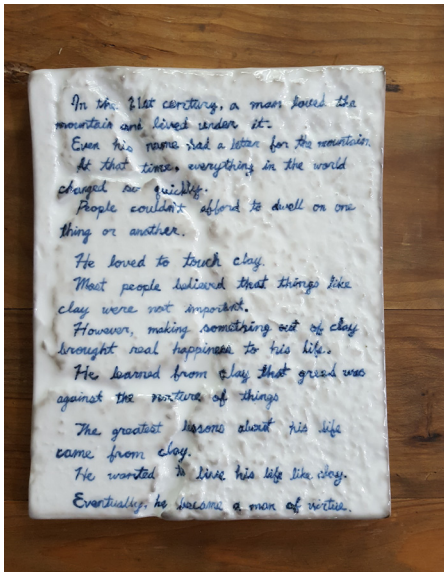 In the 21st century, a man loved the
mountain and lived under it.
Even his name had a letter for the mountain.
At that time, everything in the world
changed so quickly.
People couldn't afford to dwell on one
thing or another.
He loved to touch clay.
Most people believed that things like
clay were not important.
However, making something out of clay
brought real happiness to his life.
He learned from clay that greed was
against the nature of things
The greatest lessons about his life
came from clay.
He wanted to live his life like clay.
Eventually, he became a man of virtue.